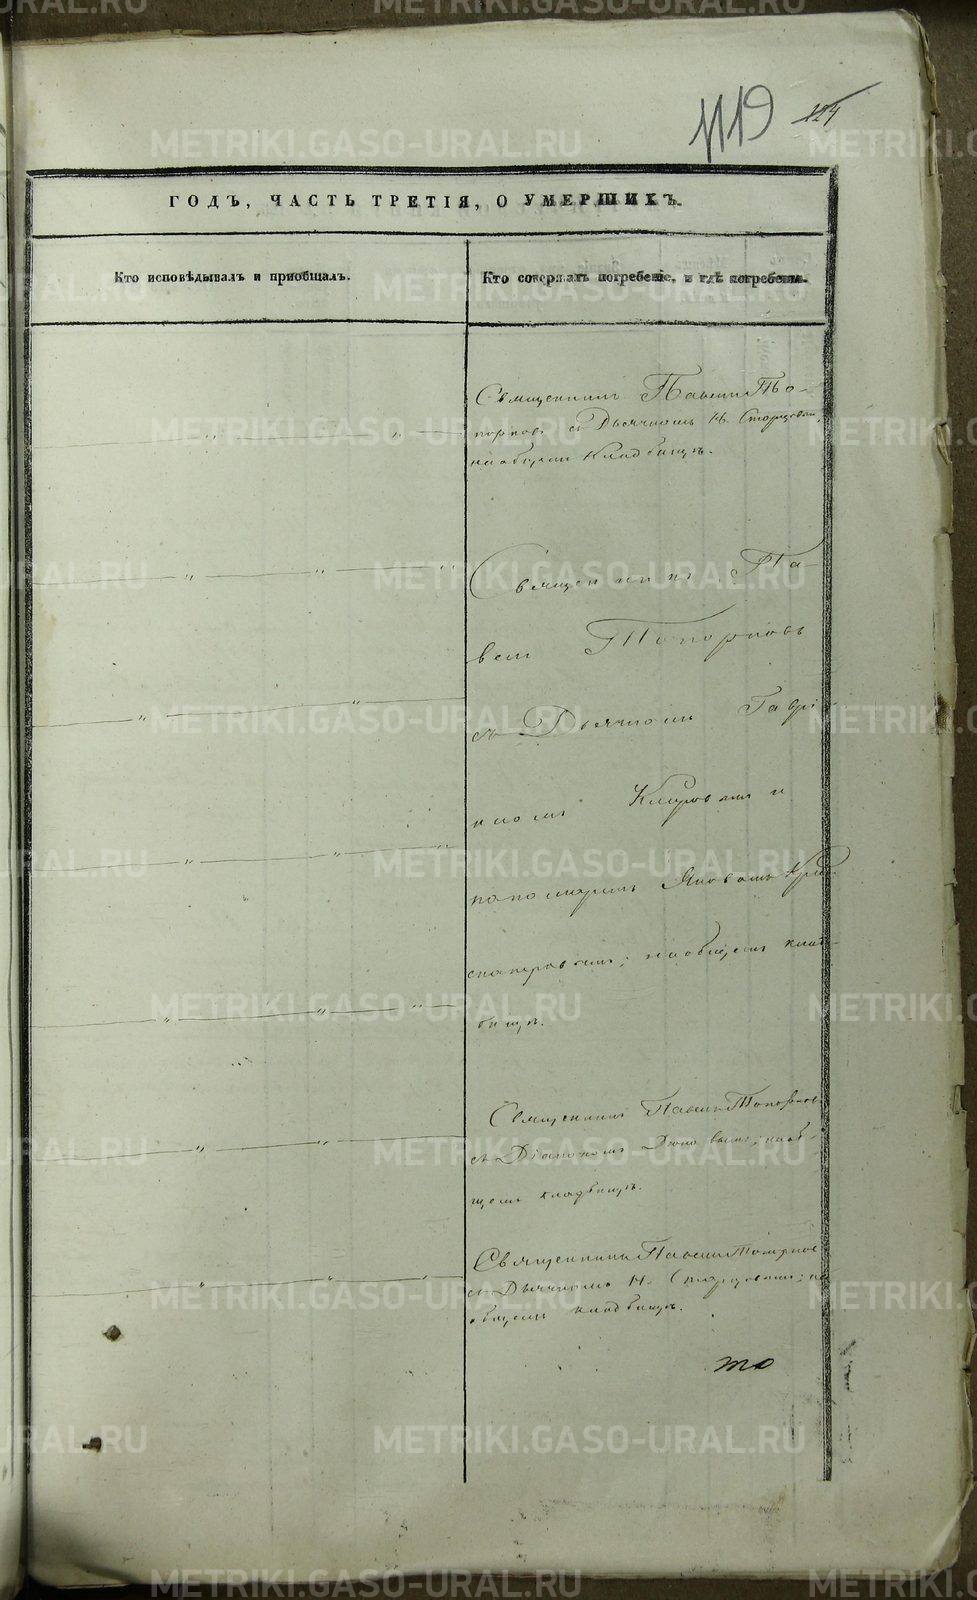 1119 124
ГОДЪ, ЧАСТЬ ТРЕТІЯ, О УМЕРШИХЪ.
Кто исповѣдывалъ и пріобщалъ.
Кто совершалъ погребеніе, и гдѣ погребены.
Священникъ Павелъ То-
порковъ съ Дьячкомъ Н.
на общемъ кладбищѣ.
Священникъ Па-
велъ Топорковъ
съ Дьячкомъ Гаврі-
иломъ и
пономаремъ Яковомъ
на общемъ клад-
бищѣ.
Священникъ Павелъ Топорковъ
съ Діакономъ на об-
щемъ кладбищѣ.
Священникъ Павелъ Топорков
съ Дьячкомъ Н. на
общемъ кладбищѣ.
METRIKI.GASO-URAL.RU